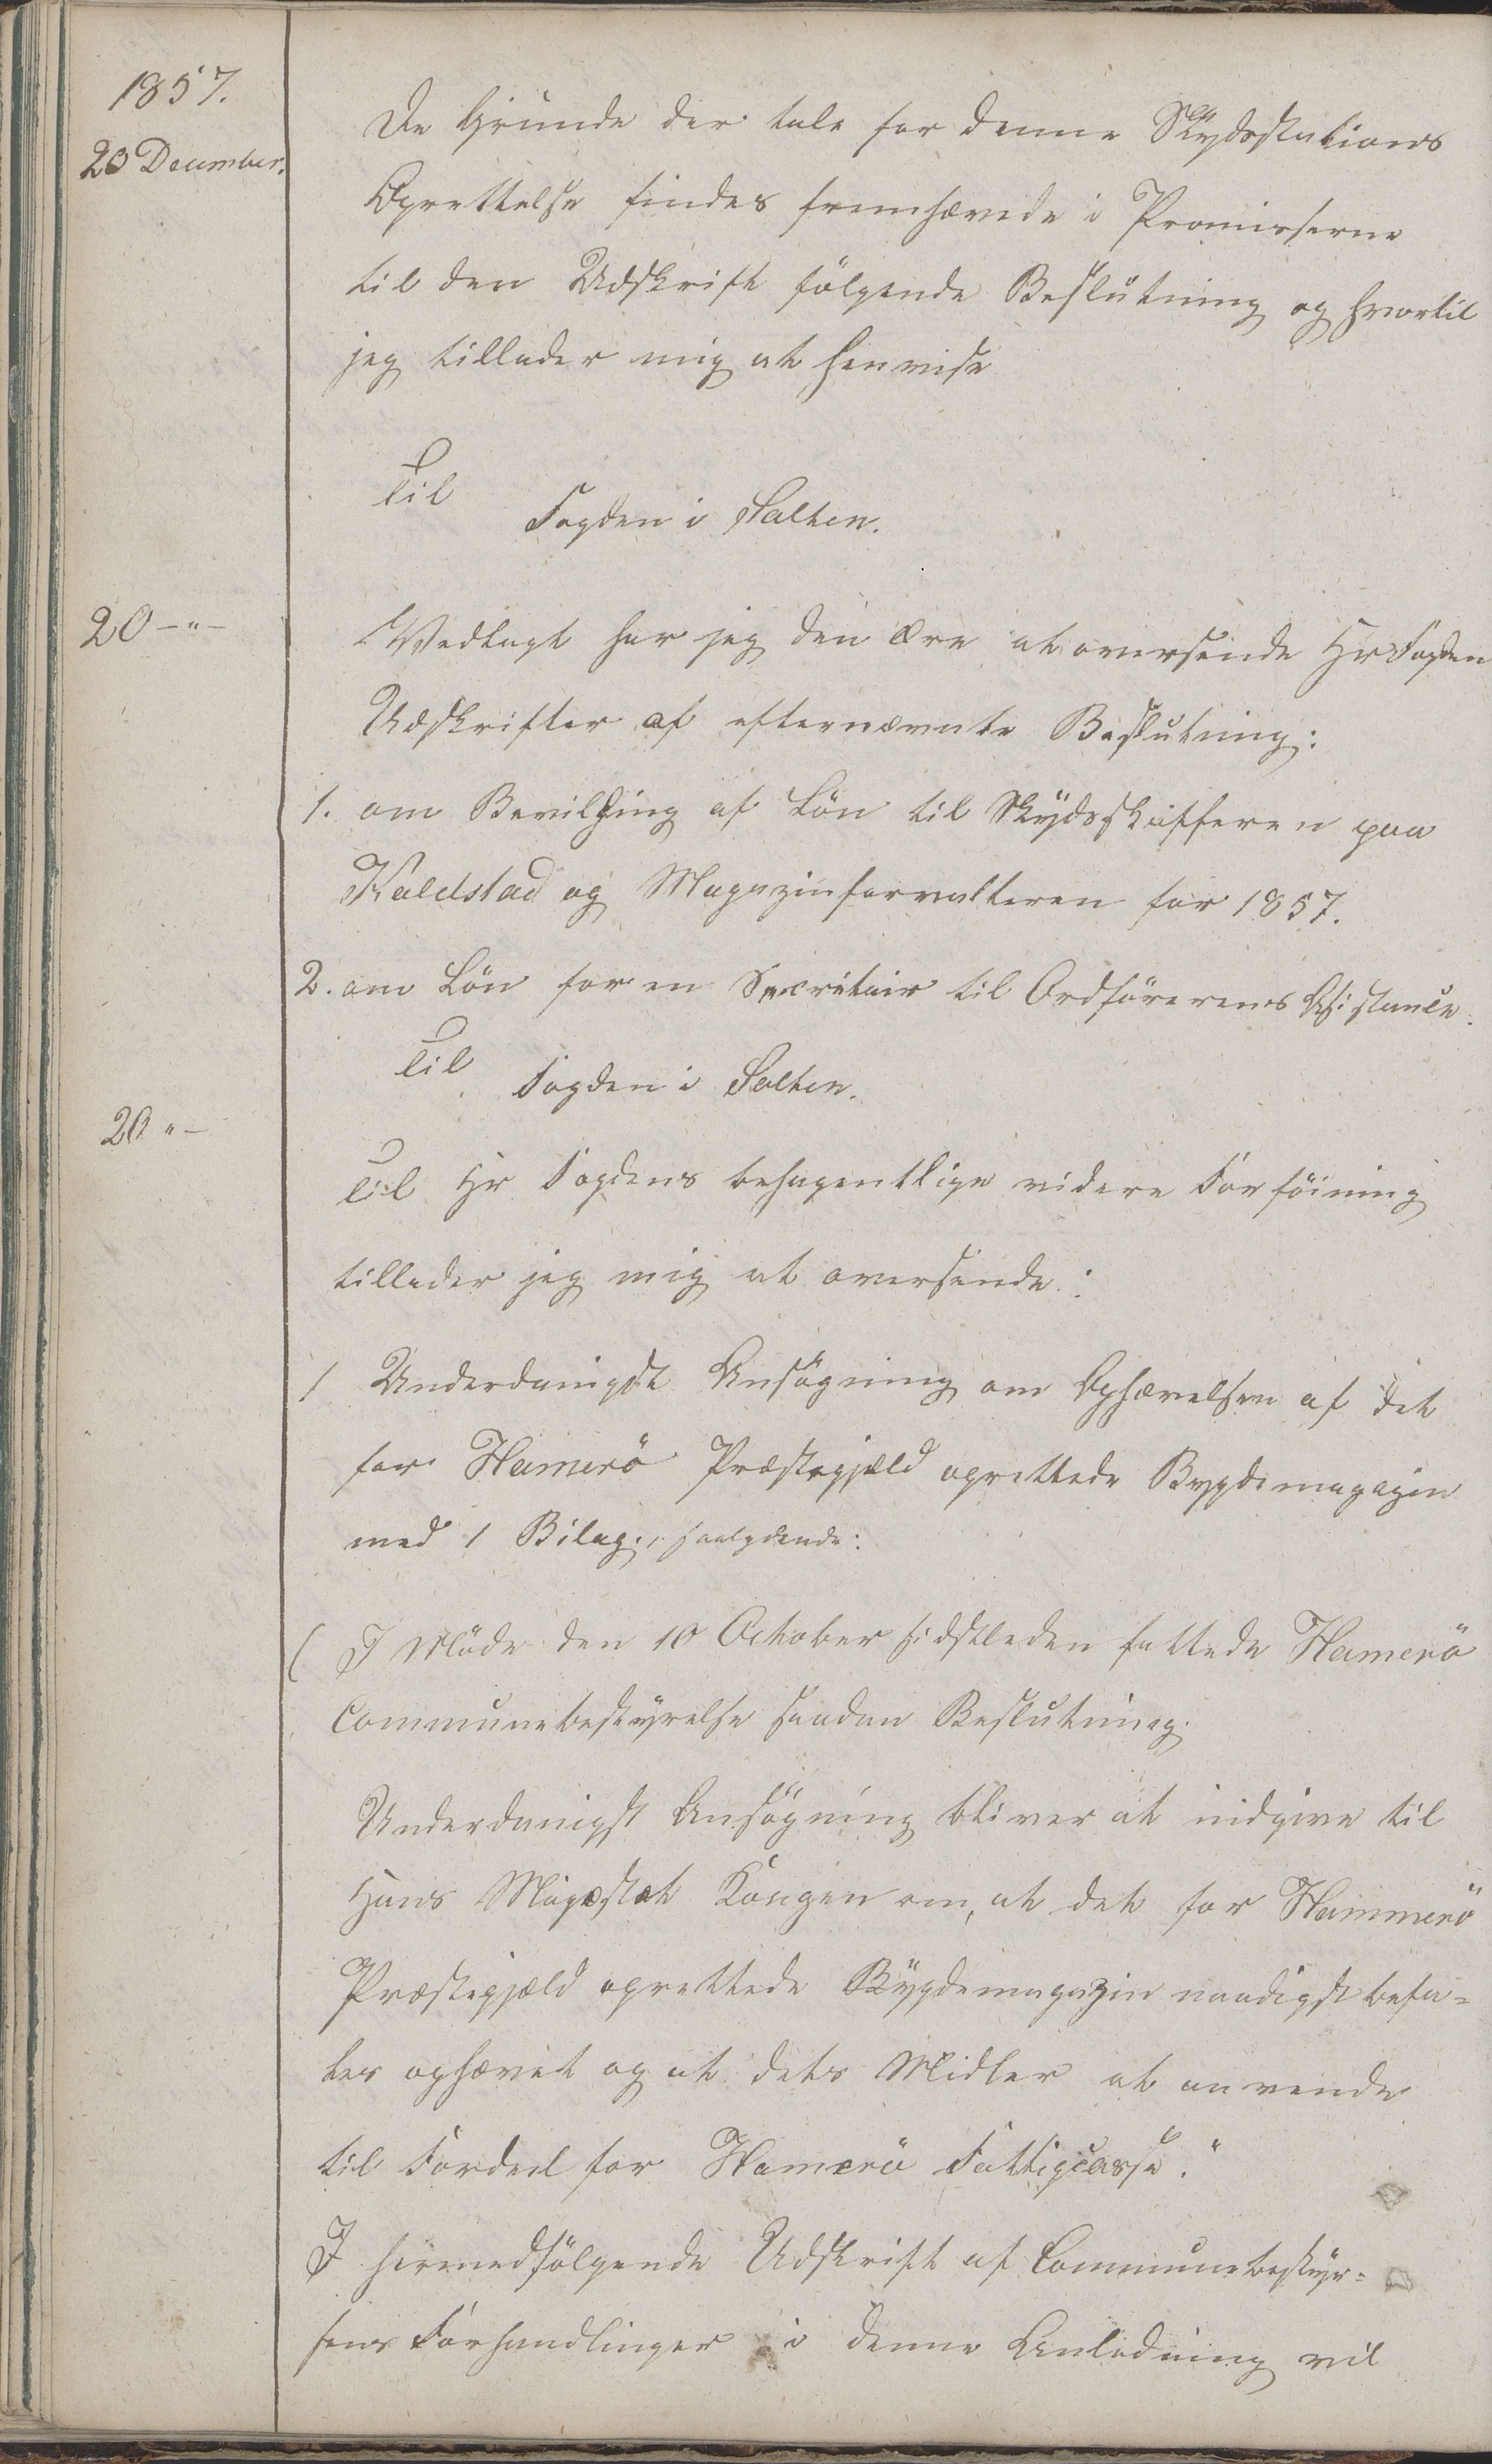 1857.
20 December.
De Grunde der tale for denne Skydsstations
Oprettelse findes fremhævede i Præmisserne
til den Udskrift følgende Beslutning og hvortil
jeg tillader mig at henvise
Til
Fogden i Salten.
20 -"-
Vedlagt har jeg den Ære at oversende Hr Fogden
Udskrifter af efternævnte Beslutning:
1. om Bevilgning af Løn til Skydsskafferen paa
Kaldstad og Magazinforvalteren for 1857.
2. om Løn for en Secretair til Ordførerens Assistance.
Til
Fogden i Salten.
20 "-
Til Hr Fogdens behagentlige videre Forføining
tillader jeg mig at oversende:
1 Underdanigst Ansøgning om Ophævelsen af det
for Hamerö Præstegjæld oprettede Bygdemagazin
med 1 Bilag, saalydende:
( I Møde den 10 October sidstleden fattede Hamerö
Communebestyrelse saadan Beslutning.
Underdanigst Ansøgning bliver at indgive til
Hans Majestæt Kongen om, at det for Hammerö
Præstegjæld oprettede Bygdemagazin naadigst befa-
les ophævet og at dets Midler at anvende
til Fordeel for Hamerö Fattigcasse."
I hermedfølgende Udskrift af Communebestyr-
sens Forhandlinger i denne Anledning vil